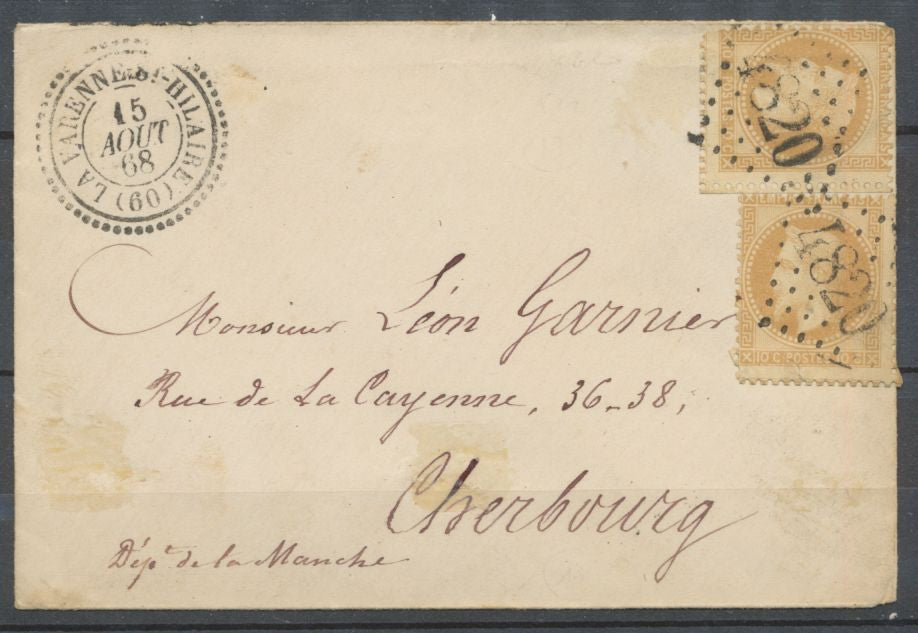 LA VARENNE-ST-HILAIRE (60)
15
AOUT
68
4820
EMPIRE FRANÇAIS
4820
10 C. POSTES 10 C.
Monsieur Léon Garnier
Rue de La Cayenne, 36-38,
Cherbourg
Dépt de la Manche